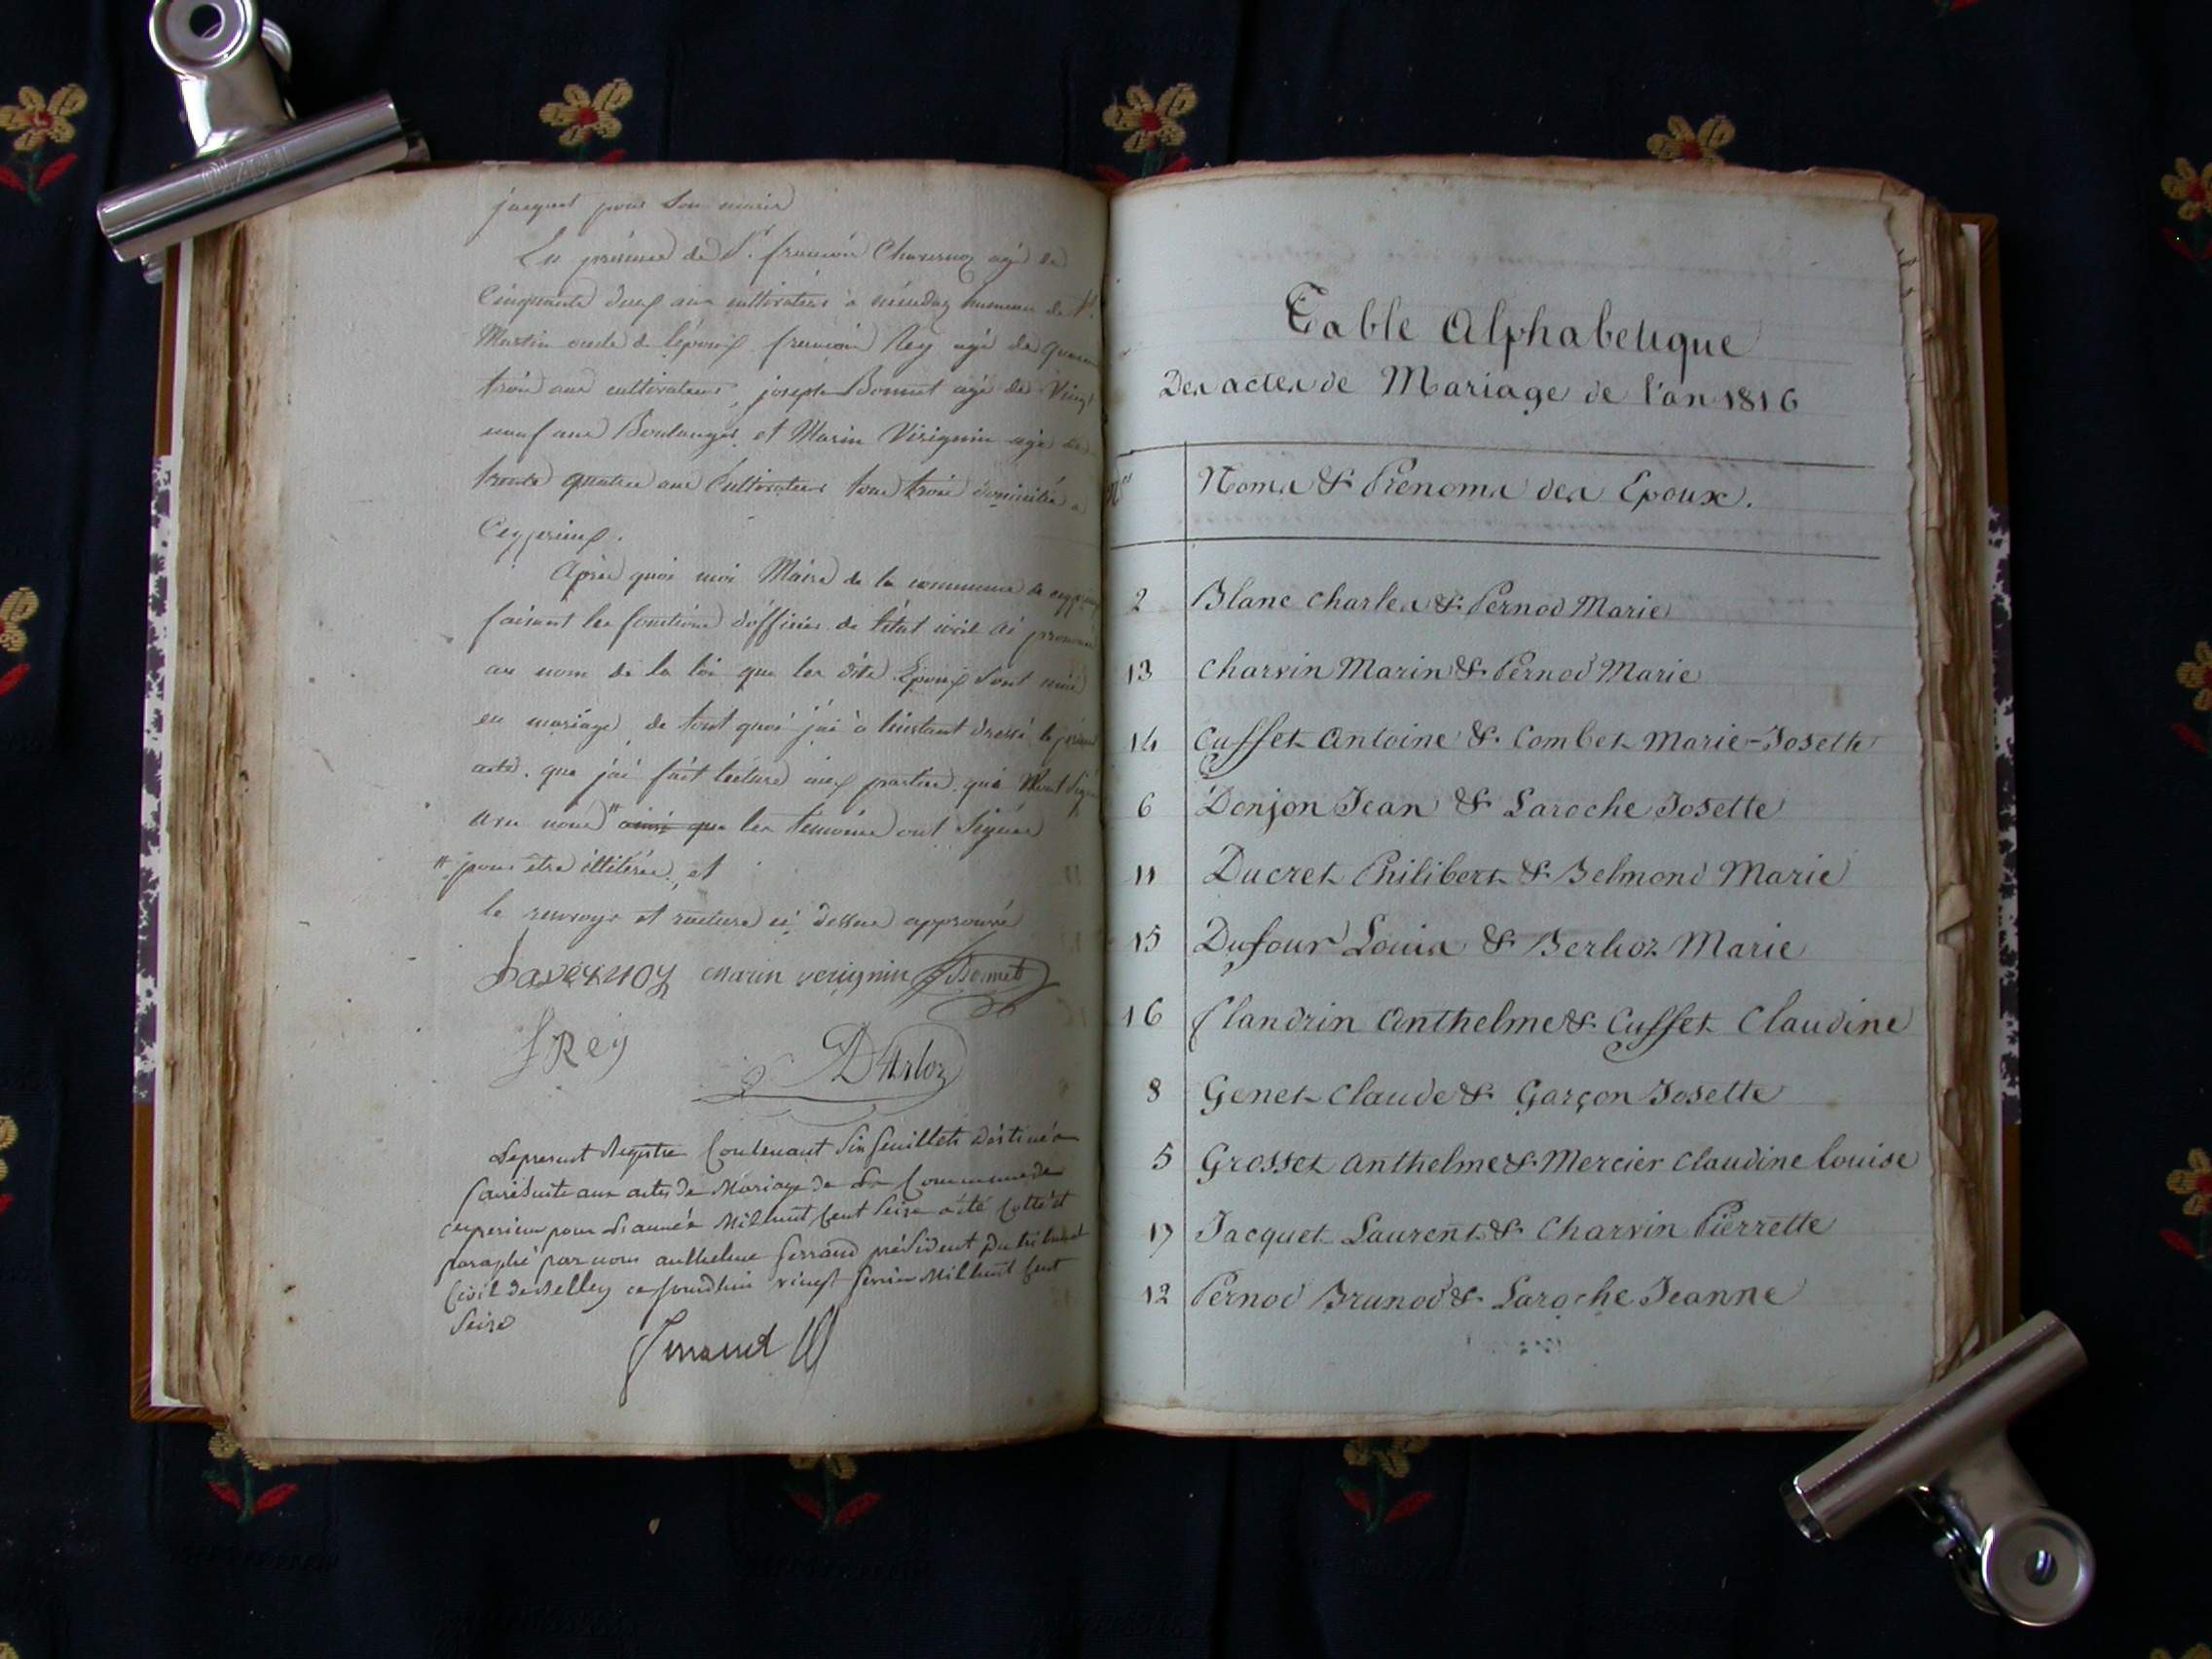 jacquet pour Son maria
En présence de Sr. françois Chavernoz agé de
Cinquante deux ans cultivateur à hameau de St.
Martin oncle de l'époux françois Rey agé de quarante
trois ans cultivateur, joseph Bonnet agé de Vingt
neuf ans Boulanger et Marin Virignin agé de
trente quatre ans Cultivateur tous trois domiciliés a
Ceyzerieux.
Après quoi moi Maire de la commune de
faisant les fonctions d'officier de l'état civil ai prononcé
au nom de la loi que les dits Epoux sont unis
en mariage, de tout quoi j'ai à l'instant dressé le présent
acte, que j'ai fait lecture aux parties qui n'ont signé
avec nous " ainsi que les temoins ont Signés
" pour être illitérés, et
le renvoye et rature ci dessus approuvé
havernoz marin verignin JBonnet
f Rey
D'Arloz
Le present Registre Contenant Six feuillets Destiné a
faire suite aux actes de Mariage de La Commune de
ceyzerieu pour L'année Mil huit Cent Seize a été Cotté et
paraphé par nous anthelme ferrand président Du tribunal
Civil De Belley ce jourd'hui vingt fevrier Mil huit Cent
Seize
ferrand
Table Alphabetique
Des actes de Mariage de l'an 1816
Nos Noms & Prénoms des Epoux.
2 Blanc Charles & Pernod Marie
13 Charvin Marin & Pernod Marie
14 Cusset Antoine & Combet Marie-Josette
6 Donjon Jean & Laroche Josette
11 Ducret Philibert & Belmond Marie
15 Dufour Louis & Berlioz Marie
16 flandrin Anthelme & Cusset Claudine
8 Genet Claude & Garçon Josette
5 Grosset Anthelme & Mercier Claudine Louise
17 Jacquet Laurent & Charvin Pierrette
12 Pernod Brunod & Laroche Jeanne